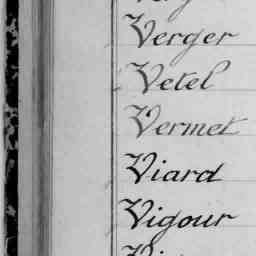 Verger
Vetel
Vermet
Viard
Vigour